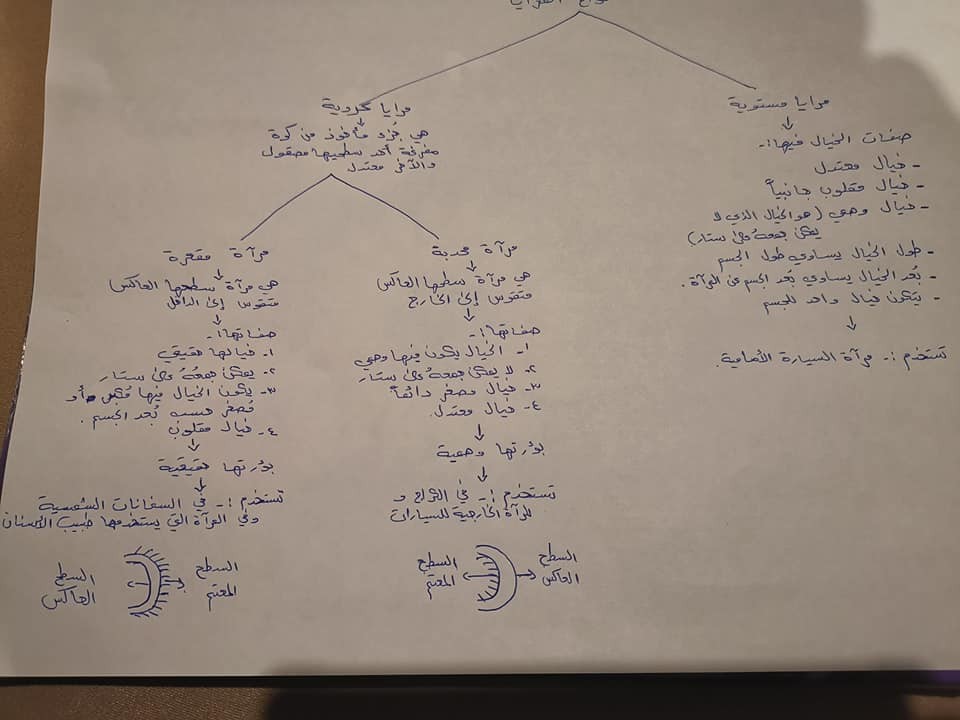 أنواع المرايا
مرايا مستوية
صفات الخيال فيها :-
- خيال معتدل
- خيال مقلوب جانبياً
- خيال وهمي (هو الخيال الذي لا
يمكن جمعهُ على ستار)
- طول الخيال يساوي طول الجسم
- بُعد الخيال يساوي بُعد الجسم عن المرآة.
- يتكون خيال واحد للجسم
تستخدم :- مرآة السيارة الأمامية.
مرايا كروية
هي جُزء مأخوذ من كرة
مفرغة أحد سطحيها مصقول
والآخر معتدل
مرآة محدبة
هي مرآة سطحها العاكس
متقوس إلى الخارج
صفاتها :-
١- الخيال يكون فيها وهمي
٢- لا يمكن جمعهُ على ستار
٣- خيال مصغر دائماً
٤- خيال معتدل.
بؤرتها وهمية
تستخدم :- في الكراج و
المرآة الخارجية للسيارات
السطح العاكس
السطح المعتم
مرآة مقعرة
هي مرآة سطحها العاكس
متقوس إلى الداخل
صفاتها :-
١- خيالها حقيقي
٢- يمكن جمعهُ على ستار
٣- يكون الخيال فيها مُكبر أو
مُصغر حسب بُعد الجسم.
٤- خيال مقلوب
بؤرتها حقيقية
تستخدم :- في السخانات الشمسية
وفي المرآة التي يستخدمها طبيب الأسنان
السطح المعتم
السطح العاكس